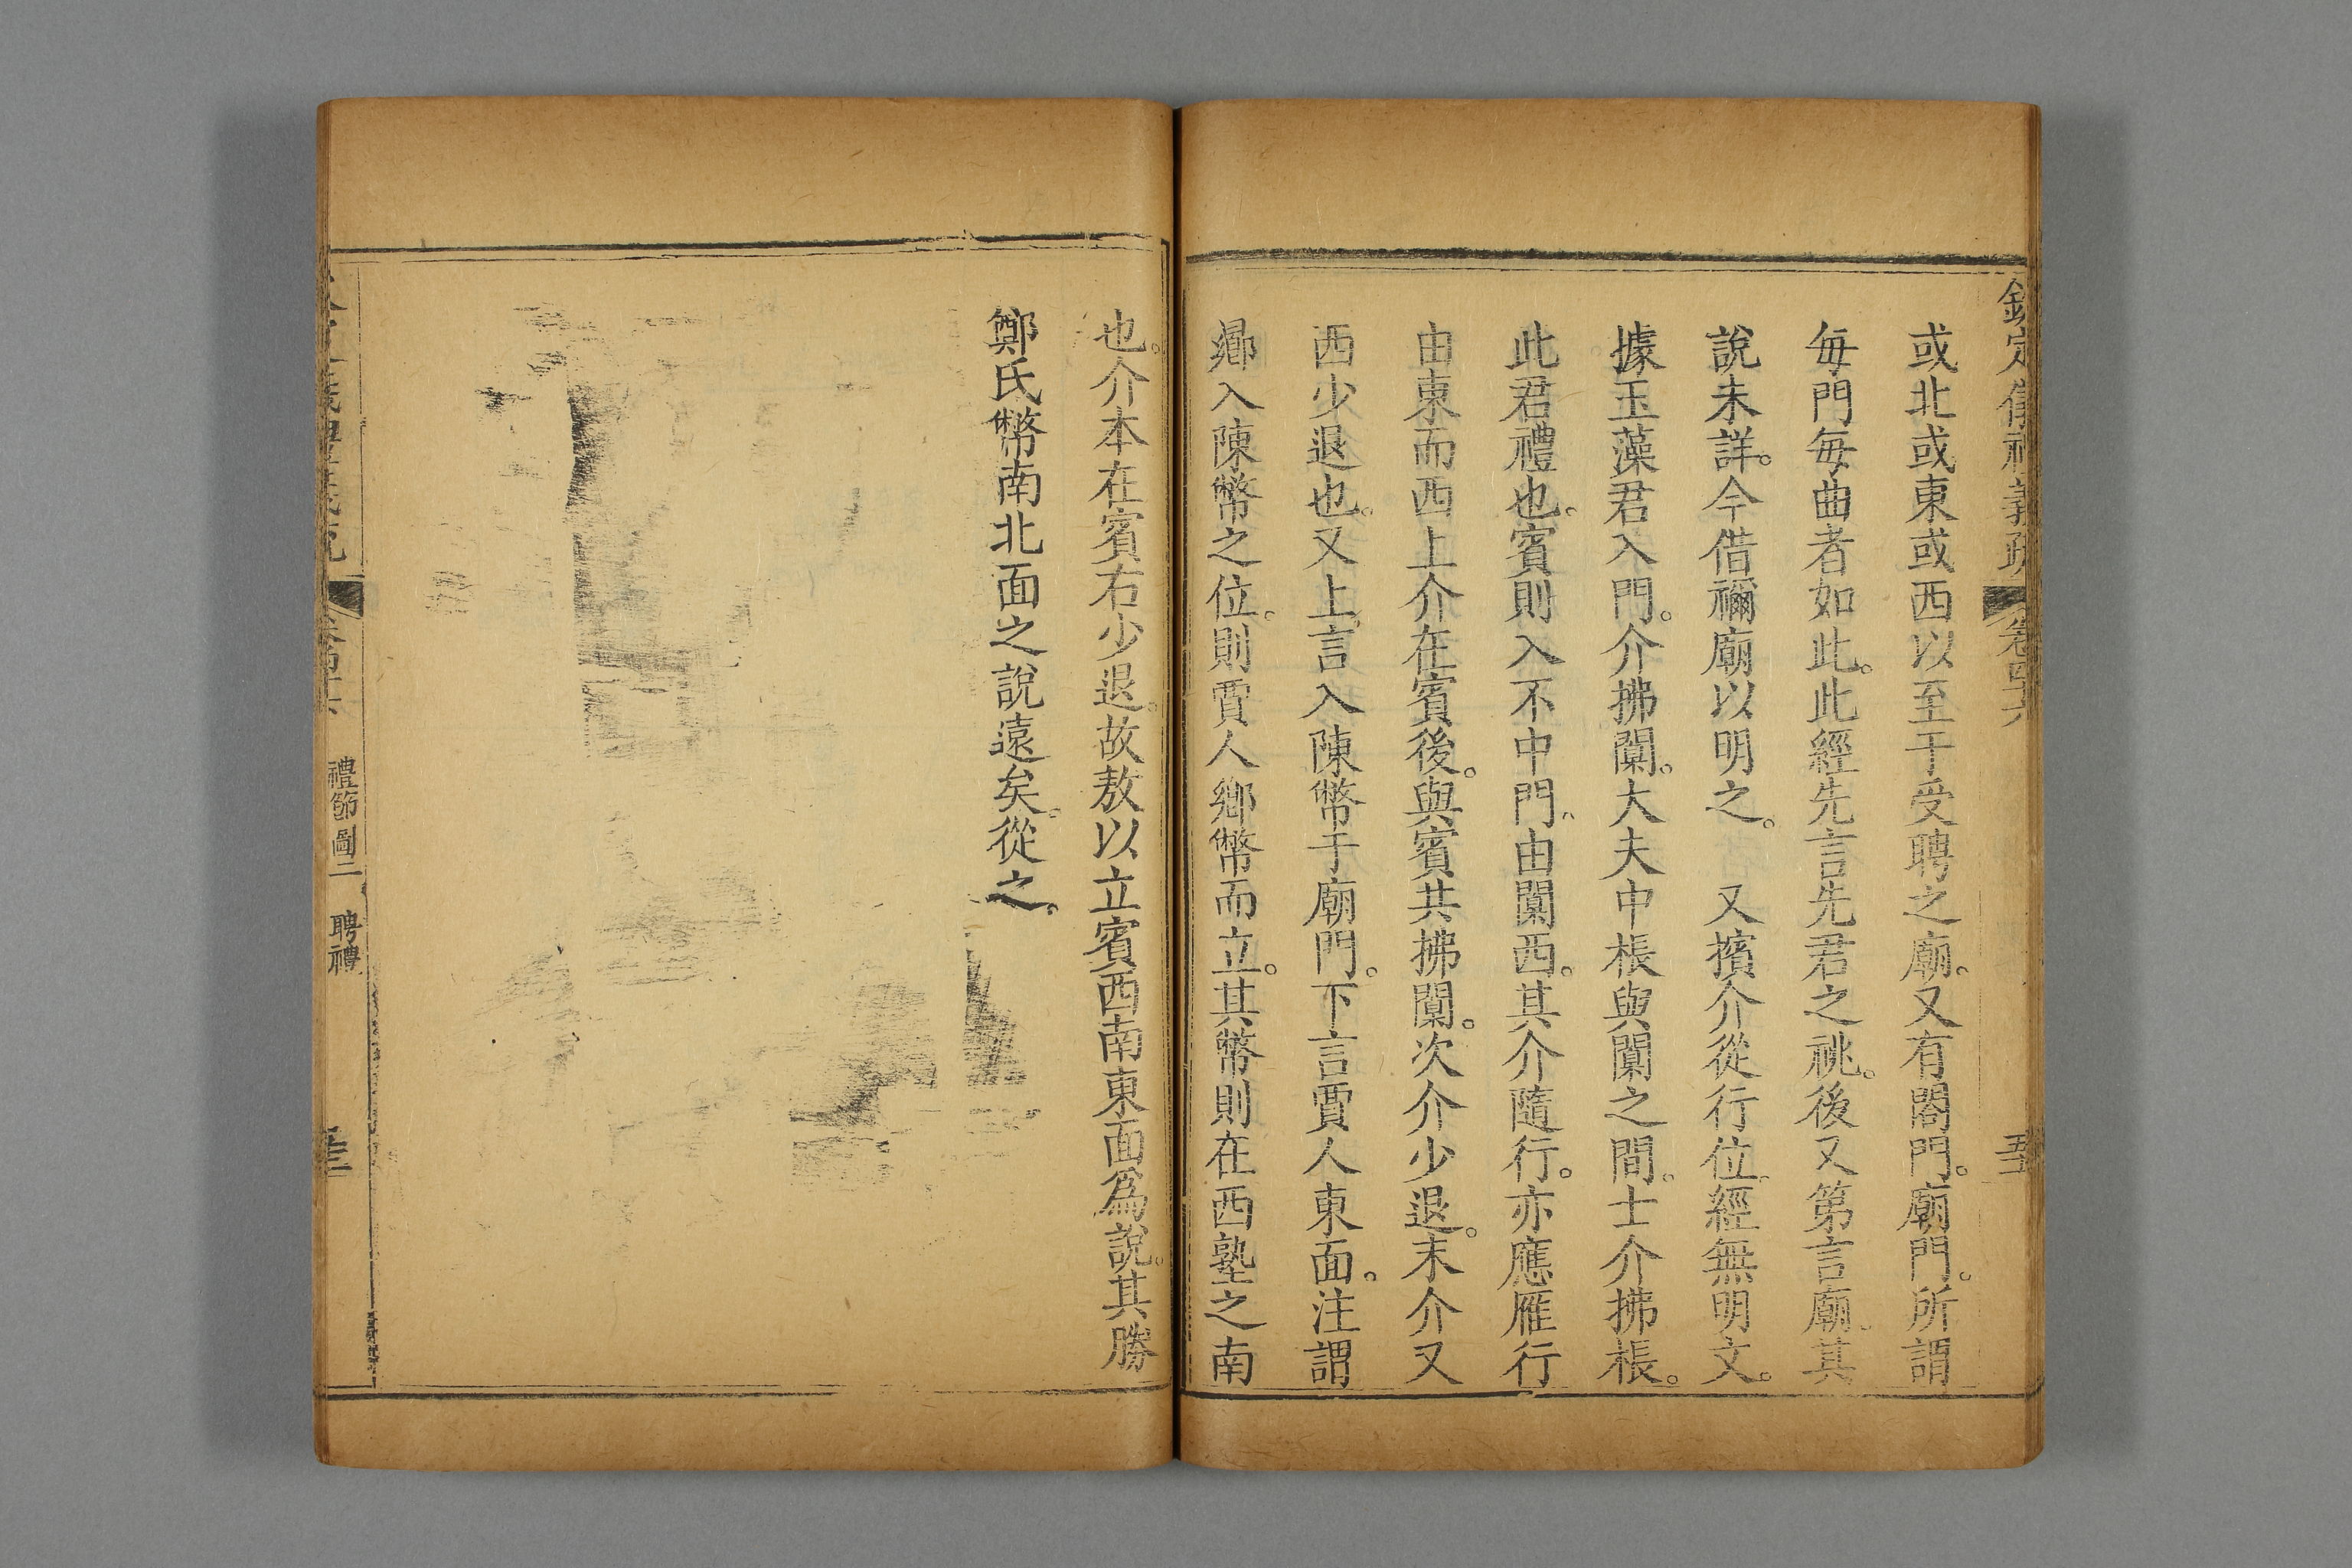 欽定儀禮義疏 卷四十六
或北或東或西以至于受聘之廟。又有閤門。廟門。所謂
每門每曲者如此。此經先言先君之祧。後又第言廟。其
說未詳。今借禰廟以明之。 又擯介從行位經無明文。
據玉藻君入門。介拂闑。大夫中棖與闑之間。士介拂棖。
此君禮也。賓則入不中門、由闑西。其介隨行。亦應雁行
由東而西上介在賓後。與賓共拂闑。次介少退。末介又
西少退也。又上言入陳幣于廟門。下言賈人東面。注謂
鄉入陳幣之位。則賈人鄉幣而立。其幣則在西塾之南
也。介本在賓右少退。故敖以立賓西南東面為說。其勝
鄭氏幣南北面之說遠矣。從之。
禮節圖二 聘禮